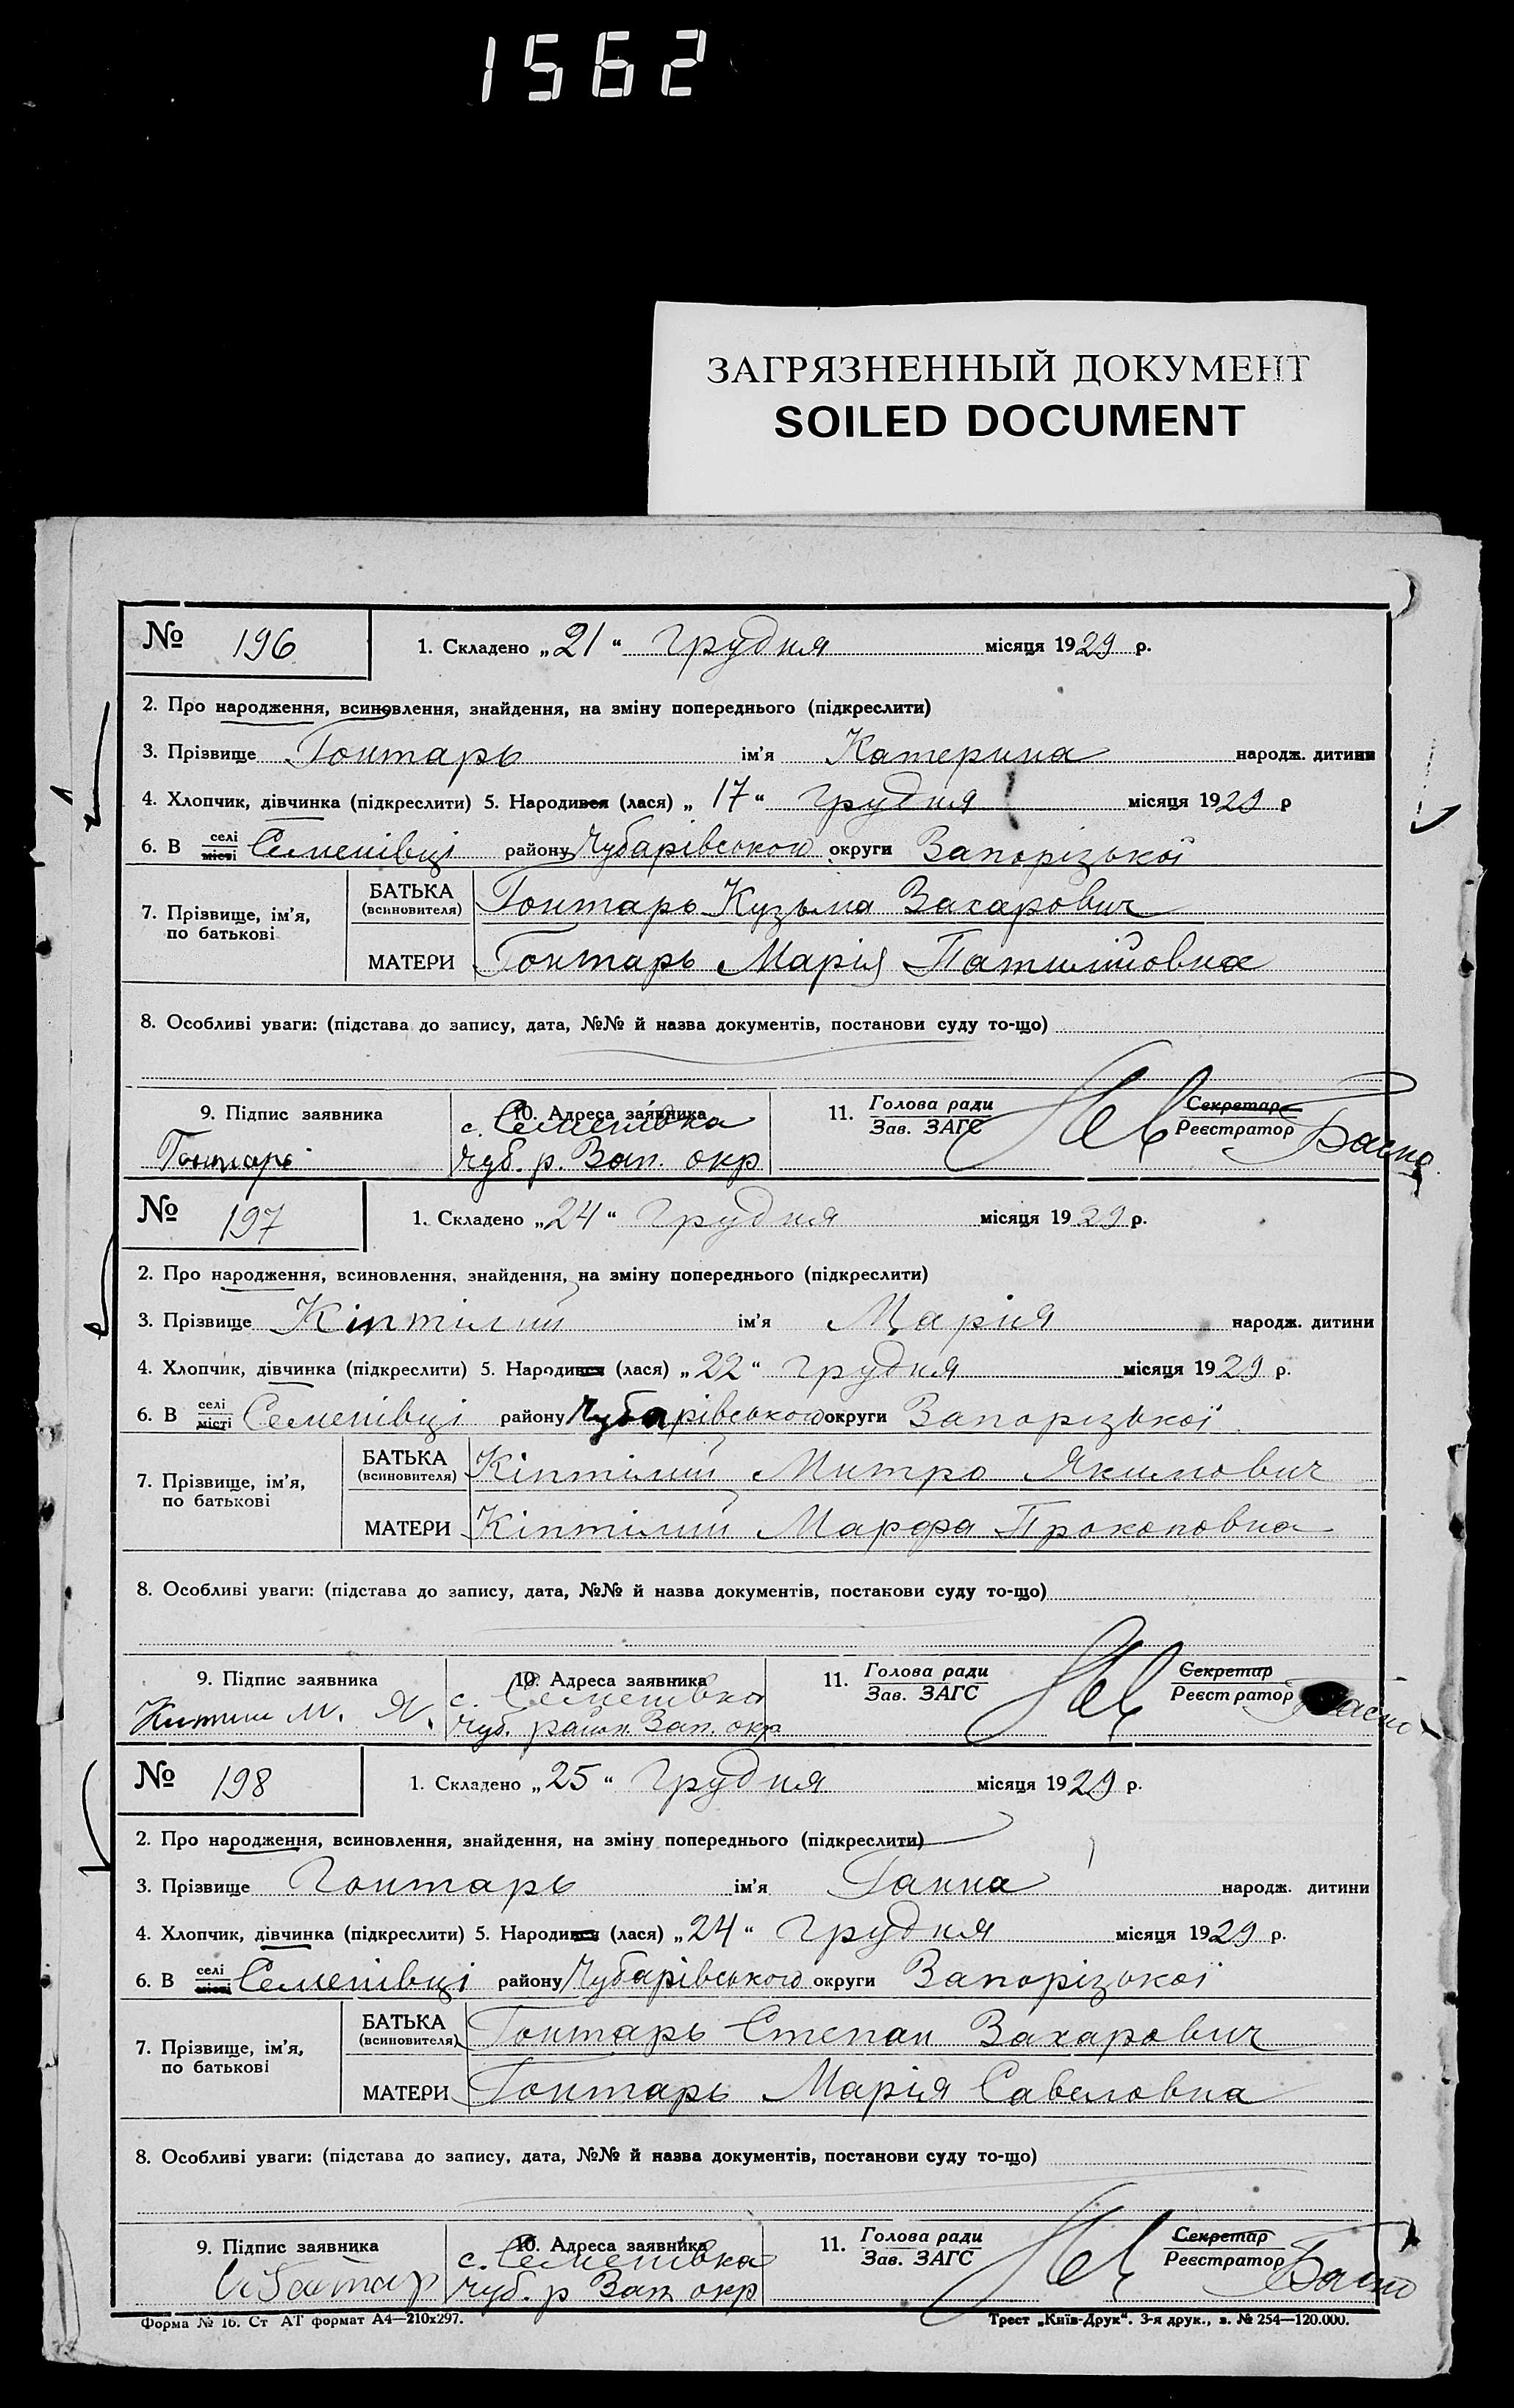 1562
ЗАГРЯЗНЕННЫЙ ДОКУМЕНТ
SOILED DOCUMENT
№ 196 1. Складено „21“ грудня місяця 1929 р.
2. Про народження, всиновлення, знайдення, на зміну попереднього (підкреслити)
3. Прізвище Гонтарь ім'я Катерина народж. дитини
4. Хлопчик, дівчинка (підкреслити) 5. Народився (лася) „17“ грудня місяця 1929 р
6. В селі місті Семенівці району Чубарівського округи Запорізької
7. Прізвище, ім'я, по батькові
БАТЬКА (всиновителя) Гонтарь Кузьма Захарович
МАТЕРИ Гонтарь Марія
8. Особливі уваги: (підстава до запису, дата, №№ й назва документів, постанови суду то-що)
9. Підпис заявника 10. Адреса заявника 11. Голова ради Зав. ЗАГС Секретар Реєстратор
Гонтарь с. Семенівка
Чуб. р. Зап. окр
№ 197 1. Складено „24“ грудня місяця 1929 р.
2. Про народження, всиновлення, знайдення, на зміну попереднього (підкреслити)
3. Прізвище Кіптілий ім'я Марія народж. дитини
4. Хлопчик, дівчинка (підкреслити) 5. Народився (лася) „22“ грудня місяця 1929 р.
6. В селі місті Семенівці району Чубарівського округи Запорізької
7. Прізвище, ім'я, по батькові
БАТЬКА (всиновителя) Кіптілий Митро Якимович
МАТЕРИ Кіптілий Марфа Прокоповна
8. Особливі уваги: (підстава до запису, дата, №№ й назва документів, постанови суду то-що)
9. Підпис заявника 10. Адреса заявника 11. Голова ради Зав. ЗАГС Секретар Реєстратор
М. Я. с. Семенівка
Чуб. район. Зап. окр
№ 198 1. Складено „25“ грудня місяця 1929 р.
2. Про народження, всиновлення, знайдення, на зміну попереднього (підкреслити)
3. Прізвище Гонтарь ім'я Ганна народж. дитини
4. Хлопчик, дівчинка (підкреслити) 5. Народився (лася) „24“ грудня місяця 1929 р.
6. В селі місті Семенівці району Чубарівського округи Запорізької
7. Прізвище, ім'я, по батькові
БАТЬКА (всиновителя) Гонтарь Степан Захарович
МАТЕРИ Гонтарь Марія Савеловна
8. Особливі уваги: (підстава до запису, дата, №№ й назва документів, постанови суду то-що)
9. Підпис заявника 10. Адреса заявника 11. Голова ради Зав. ЗАГС Секретар Реєстратор
с. Семенівка
Чуб. р Зап окр
Форма № 16. Ст АТ формат А4—210х297. Трест „Київ-Друк“. 3-я друк., з. № 254—120.000.